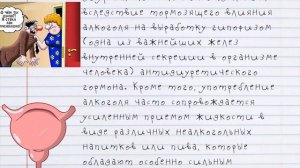 вследствие тормозящего влияния
алкоголя на выработку гипофизом
(одна из важнейших желез
внутренней секреции в организме
человека) антидиуретического
гормона. Кроме того, употребление
алкоголя часто сопровождается
усиленным приемом жидкости в
виде различных неалкогольных
напитков или пива, которые
обладают особенно сильным